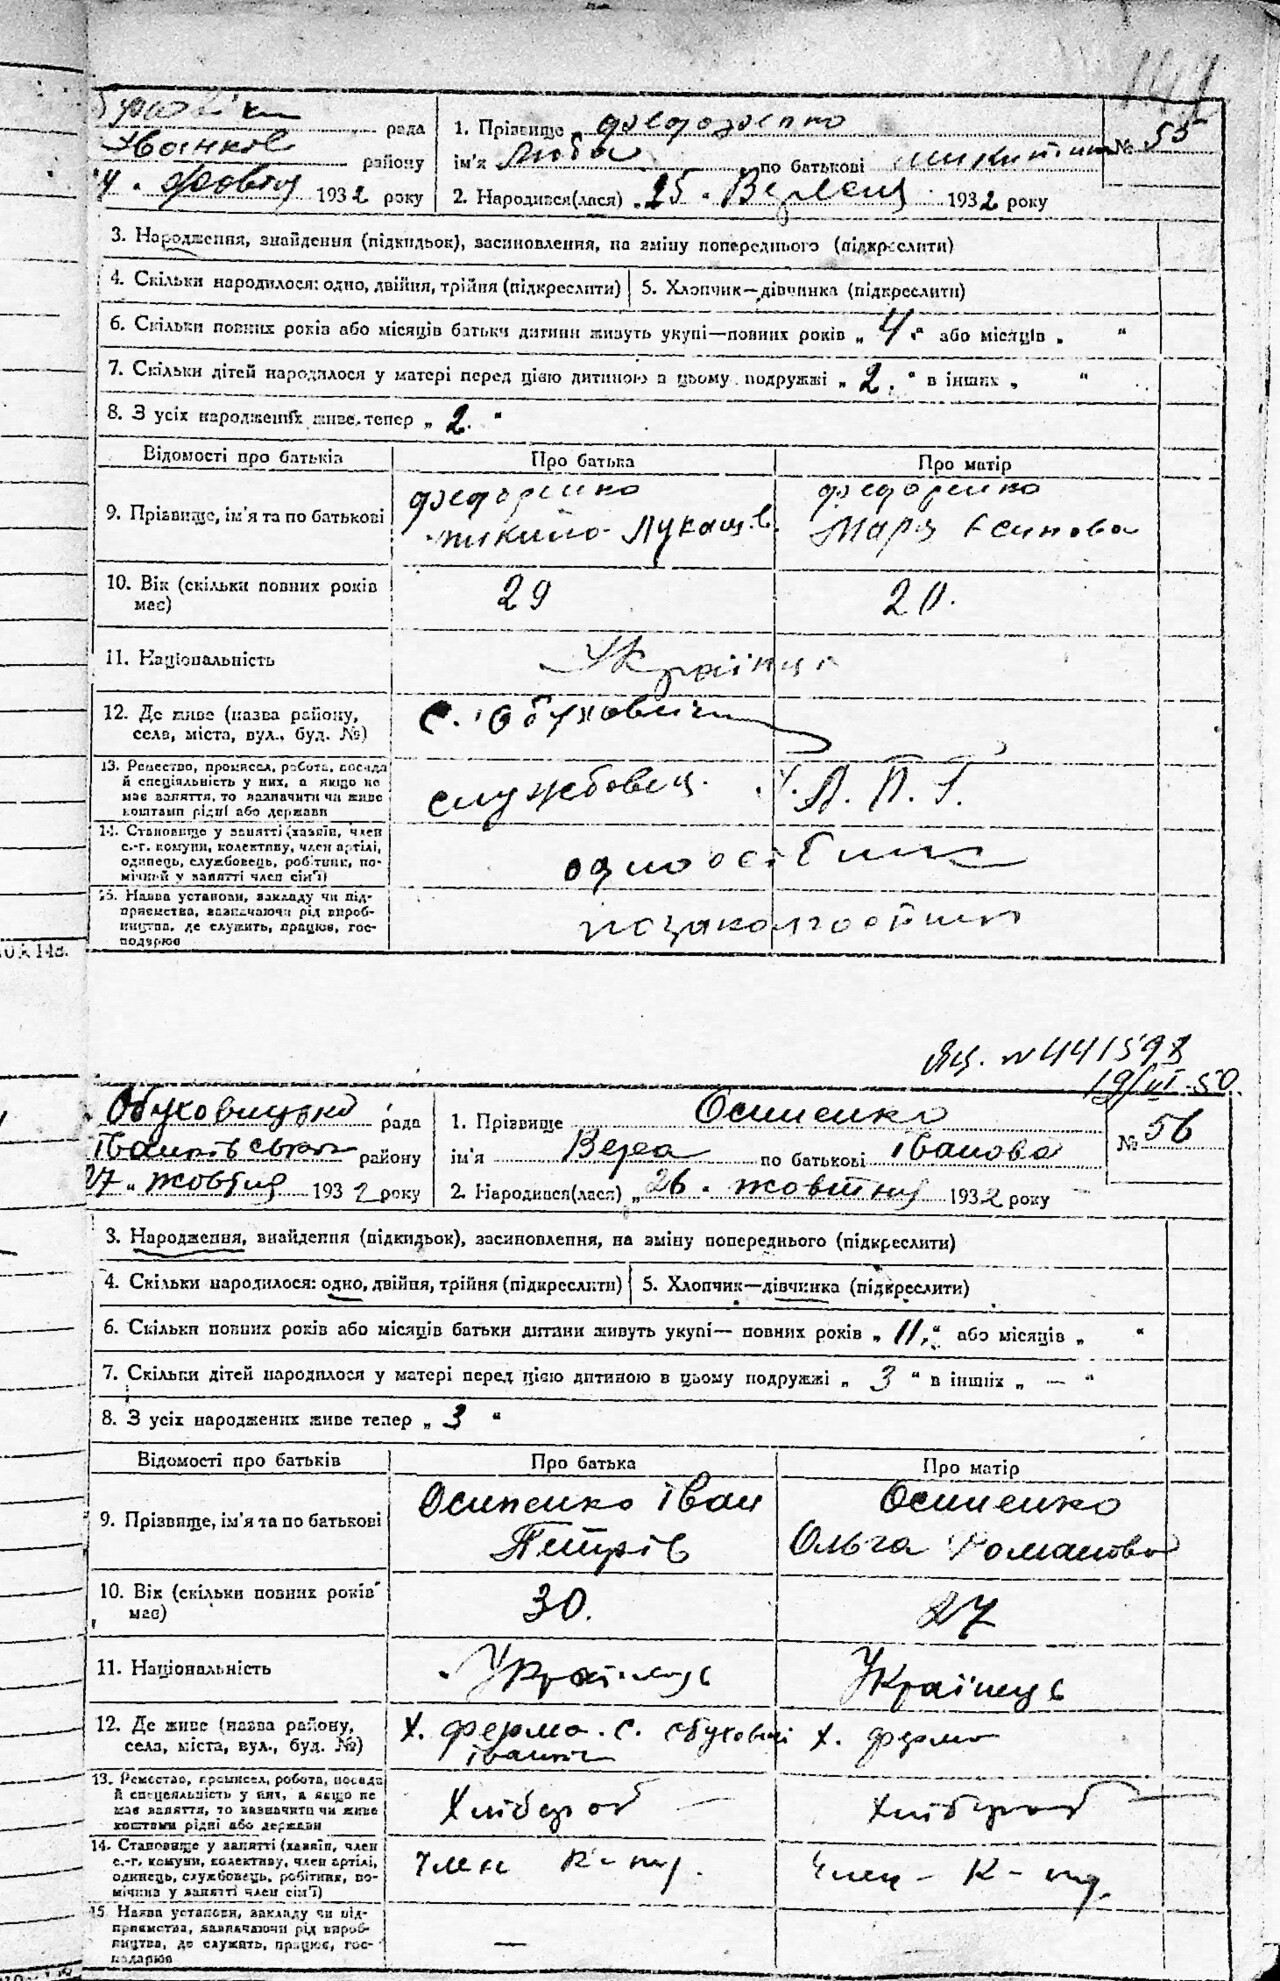 141
рада
району
4. Жовтня 1932 року
1. Прізвище Федоренко
ім'я Люба по батькові Микитин
2. Народився(лася) „25. Вересня 1932 року
№ 55
3. Народження, знайдення (підкидьок), засиновлення, на зміну попереднього (підкреслити)
4. Скільки народилося: одно, двійня, трійня (підкреслити)
5. Хлопчик—дівчинка (підкреслити)
6. Скільки повних років або місяців батьки дитини живуть укупі—повних років „ 4 “ або місяців „ “
7. Скільки дітей народилося у матері перед цією дитиною в цьому подружжі „ 2. “ в інших „ “
8. З усіх народжених живе тепер „ 2. “
Відомості про батьків
Про батька
Про матір
9. Прізвище, ім'я та по батькові
Федоренко
Микита Лукашів
Федоренко
Марія
10. Вік (скільки повних років
має)
29
20.
11. Національність
Українці
12. Де живе (назва району,
села, міста, вул., буд. №)
с. Обуховичі
13. Ремество, промисел, робота, посада
й спеціяльність у них, а якщо не
має заняття, то зазначити чи живе
коштами рідні або держави
службовец.
Л. П. Г.
14. Становище у занятті (хазяїн, член
с.-г. комуни, колективу, член артілі,
одинець, службовець, робітник, по-
мічний у занятті член сім'ї)
одноосібник
15. Назва установи, закладу чи під-
приємства, зазначаючи рід вироб-
ництва, де служить, працює, гос-
подарює
позаколгоспник
Яц. №441598
19/III-50
Обуховицька рада
Іванківська району
27 „ жовтня 1932 року
1. Прізвище Осипенко
ім'я Вера по батькові Іванова
2. Народився(лася) „26. жовтня 1932 року
№ 56
3. Народження, знайдення (підкидьок), засиновлення, на зміну попереднього (підкреслити)
4. Скільки народилося: одно, двійня, трійня (підкреслити)
5. Хлопчик—дівчинка (підкреслити)
6. Скільки повних років або місяців батьки дитини живуть укупі— повних років „ 11. “ або місяців „ “
7. Скільки дітей народилося у матері перед цією дитиною в цьому подружжі „ 3 “ в інших „ — “
8. З усіх народжених живе тепер „ 3 “
Відомості про батьків
Про батька
Про матір
9. Прізвище, ім'я та по батькові
Осипенко Іван
Петрів
Осипенко
Ольга Романова
10. Вік (скільки повних років
має)
30.
27
11. Національність
Українець
Українець
12. Де живе (назва району,
села, міста, вул., буд. №)
х. ферма. с. Обуховичі
х. ферма
13. Ремество, промисел, робота, посада
й спеціяльність у них, а якщо не
має заняття, то зазначити чи живе
коштами рідні або держави
Хлібороб —
Хлібороб —
14. Становище у занятті (хазяїн, член
с.-г. комуни, колективу, член артілі,
одинець, службовець, робітник, по-
мічний у занятті член сім'ї)
член к-пу.
член — к-пу.
15. Назва установи, закладу чи під-
приємства, зазначаючи рід вироб-
ництва, де служить, працює, гос-
подарює
—